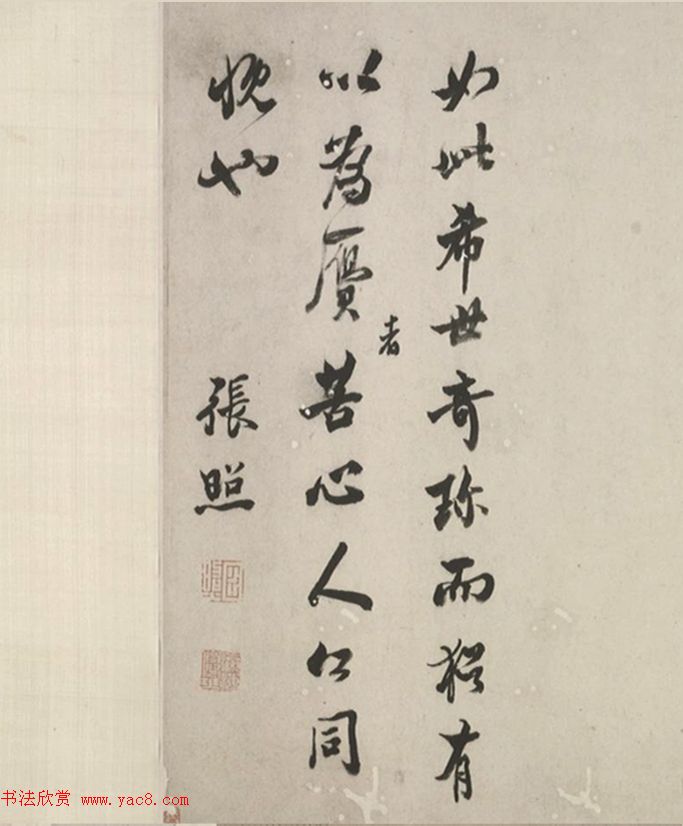 如此希世奇珍而猶有
以為贋者苦心人所同
慨也
張照
书法欣赏 www.yac8.com